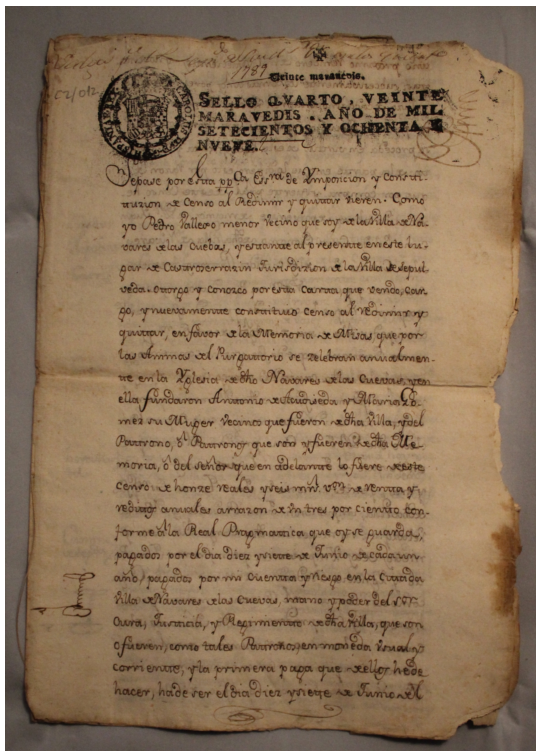 1789
C2/012
Veinte maravedis.
SELLO QVARTO, VEINTE
MARAVEDIS. AÑO DE MIL
SETECIENTOS Y OCHENTA Y
NVEVE.
Sepase por esta pp.ca Ess.ra de Ymposicion y Consti-
tuzion de Censo al Redimir y quitar vieren. Como
yo Pedro Vallejo menor vecino que soy de la Villa de Na-
vares de las Cuebas, y estante al presente en este lu-
gar de Castroserracin Jurisdizion de la Villa de Sepul-
veda. Otorgo y Conozco por esta Carta que vendo, Car-
go, y nuevamente constituio Censo al redimir, y
quitar, en favor de la Memoria de Misas, que por
las Animas del Purgatorio se zelebran anualmen-
te en la Yglesia de dho Navares de las Cuevas, y en
ella fundaron Antonio de y Maria Go-
mez su Muger vecinos que fueron de dha Villa, y del
Patrono, ô Patronos que son y fueren de dha Me-
moria, ô del señor que en adelante lo fuere de este
Censo: de honze reales y seis mrs. vn. de rentta y
reditos anuales arrazon de un tres por ciento con-
forme â la Real Pragmatica que oy se guarda,
pagados por el dia diez y siete de Junio de cada un
año, pagados por mi Cuenta y riesgo en la Cittada
Villa de Návares de las Cuevas, mano y poder del Sor
Cura, Justicia, y Regimiento de dha Villa, que son
o fueren, como tales Patronos, en moneda usual y
corriente, y la primera paga que de ellos he de
hacer, ha de ser el dia diez y siete de Junio del